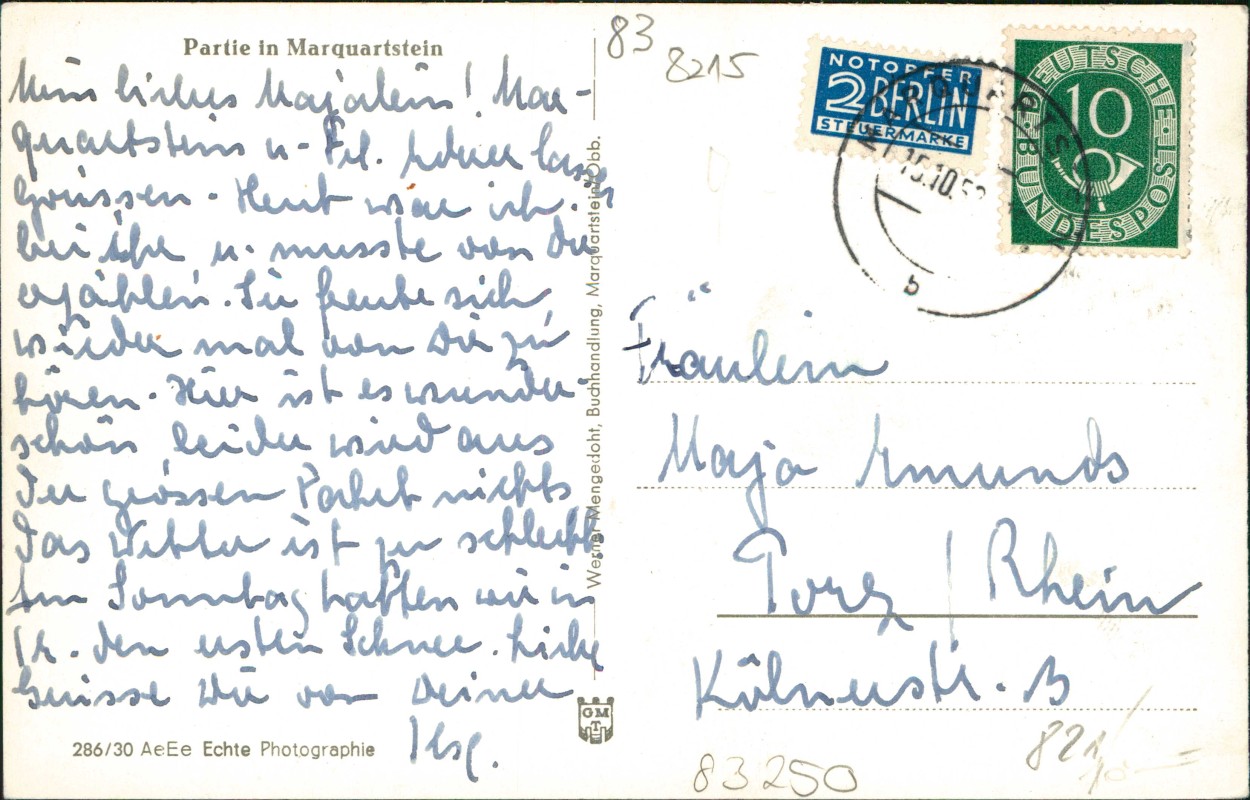 Partie in Marquartstein
Mein liebes Majalein! Mar-
quartstein u. Frl. lassen
Grüssen. Heut war ich
bei ihr u. musste von Dir
erzählen. Sie freute sich,
wieder mal von Dir zu
hören. Hier ist es wunder-
schön, leider wird aus
der grossen nichts
Das Wetter ist zu schlecht
Am Sonntag hatten wir in
den ersten Schnee. Liebe
Grüsse Dir von Deiner
Ilse.
286/30 AeEe Echte Photographie
Werner Mengedoht, Buchhandlung, Marquartstein/Obb.
GM
T
83
8215
NOTOPFER
2 BERLIN
STEUERMARKE
DEUTSCHE BUNDESPOST
10
MARQUARTSTEIN
15.10.52
b
Fräulein
Maja Emunds
Porz / Rhein
Kölnerstr. 13
83250